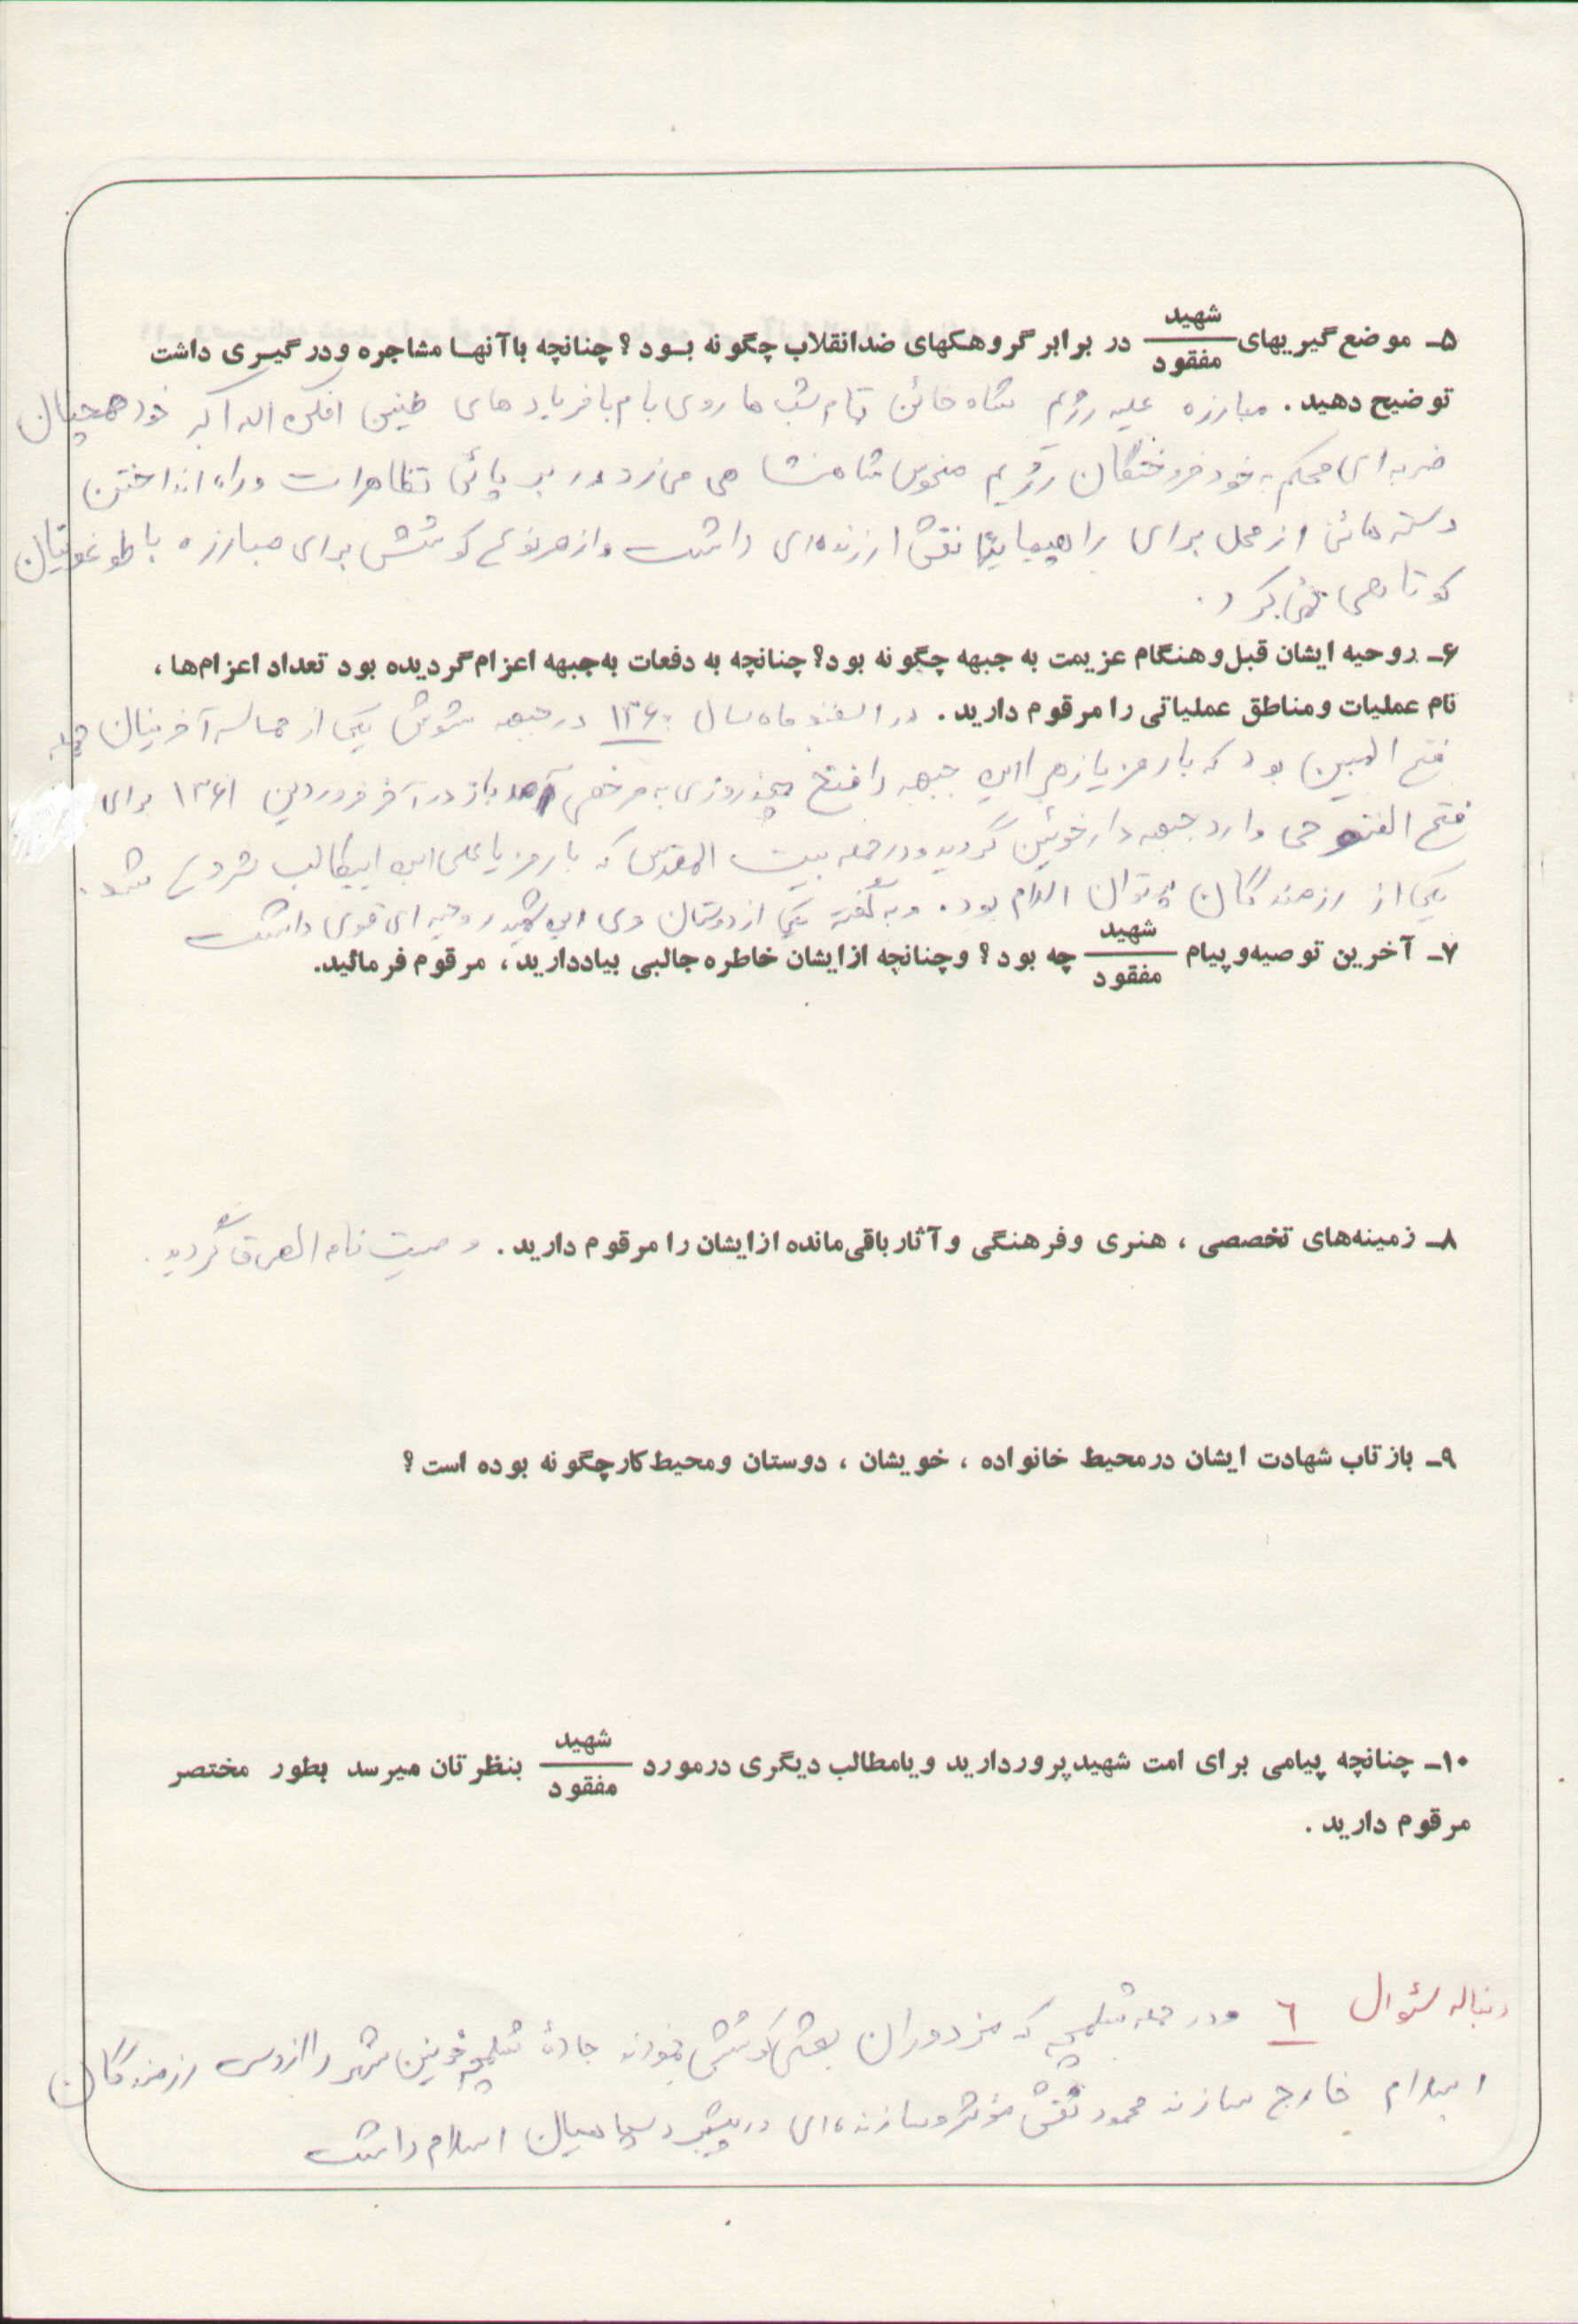 ۵ـ موضع گیریهای شهید/مفقود در برابر گروهکهای ضدانقلاب چگونه بود؟ چنانچه باآنها مشاجره ودرگیری داشت
توضیح دهید. مبارزه علیه رژیم شاه خائن تمام شب ها روی بام با فریاد های طنین افکن الله اکبر خود همچنان
ضربه ای محکم به خود فروختگان رژیم منحوس شاهنشاهی می زد در بر پائی تظاهرات و راه انداختن
دسته هائی از محل برای راهپیمایی‌ها نقش ارزنده‌ای داشت و از هر نوع کوشش برای مبارزه با طوغوتیان
کوتاهی نمی کرد.
۶ـ روحیه ایشان قبل وهنگام عزیمت به جبهه چگونه بود؟ چنانچه به دفعات به‌جبهه اعزام‌گردیده بود تعداد اعزام‌ها،
نام عملیات ومناطق عملیاتی را مرقوم دارید. در اسفند ماه سال ۱۳۶۰ در جبهه شوش یکی از حماسه آفرینان حمله
فتح المبین بود که با رمز یا زهرا این جبهه را فتح چند روزی به مرخصی آمد باز در آخر فروردین ۱۳۶۱ برای
فتح الفتوحی وارد جبهه دارخوئین گردید و در حمله بیت المقدس که با رمز یا علی ابن ابیطالب شروع شد.
یکی از رزمندگان پرتوان اسلام بود. و به گفته یکی از دوستان وی این شهید روحیه ای قوی داشت
۷ـ آخرین توصیه‌وپیام شهید/مفقود چه بود؟ وچنانچه ازایشان خاطره جالبی بیاددارید، مرقوم فرمائید.
۸ـ زمینه‌های تخصصی، هنری وفرهنگی وآثارباقی‌مانده ازایشان را مرقوم دارید. وصیت نامه الصاق گردید.
۹ـ بازتاب شهادت ایشان درمحیط خانواده، خویشان، دوستان ومحیط‌کارچگونه بوده است؟
۱۰ـ چنانچه پیامی برای امت شهیدپروردارید ویامطالب دیگری درمورد شهید/مفقود بنظرتان میرسد بطور مختصر
مرقوم دارید.
دنباله سئوال ٦ و در حمله شلمچه که مزدوران بعثی کوشش نمودند جادهٔ شلمچه خونین شهر را از دست رزمندگان
اسلام خارج سازند محمود نقش مؤثر و سازنده‌ای در پیشبرد سپاهیان اسلام داشت